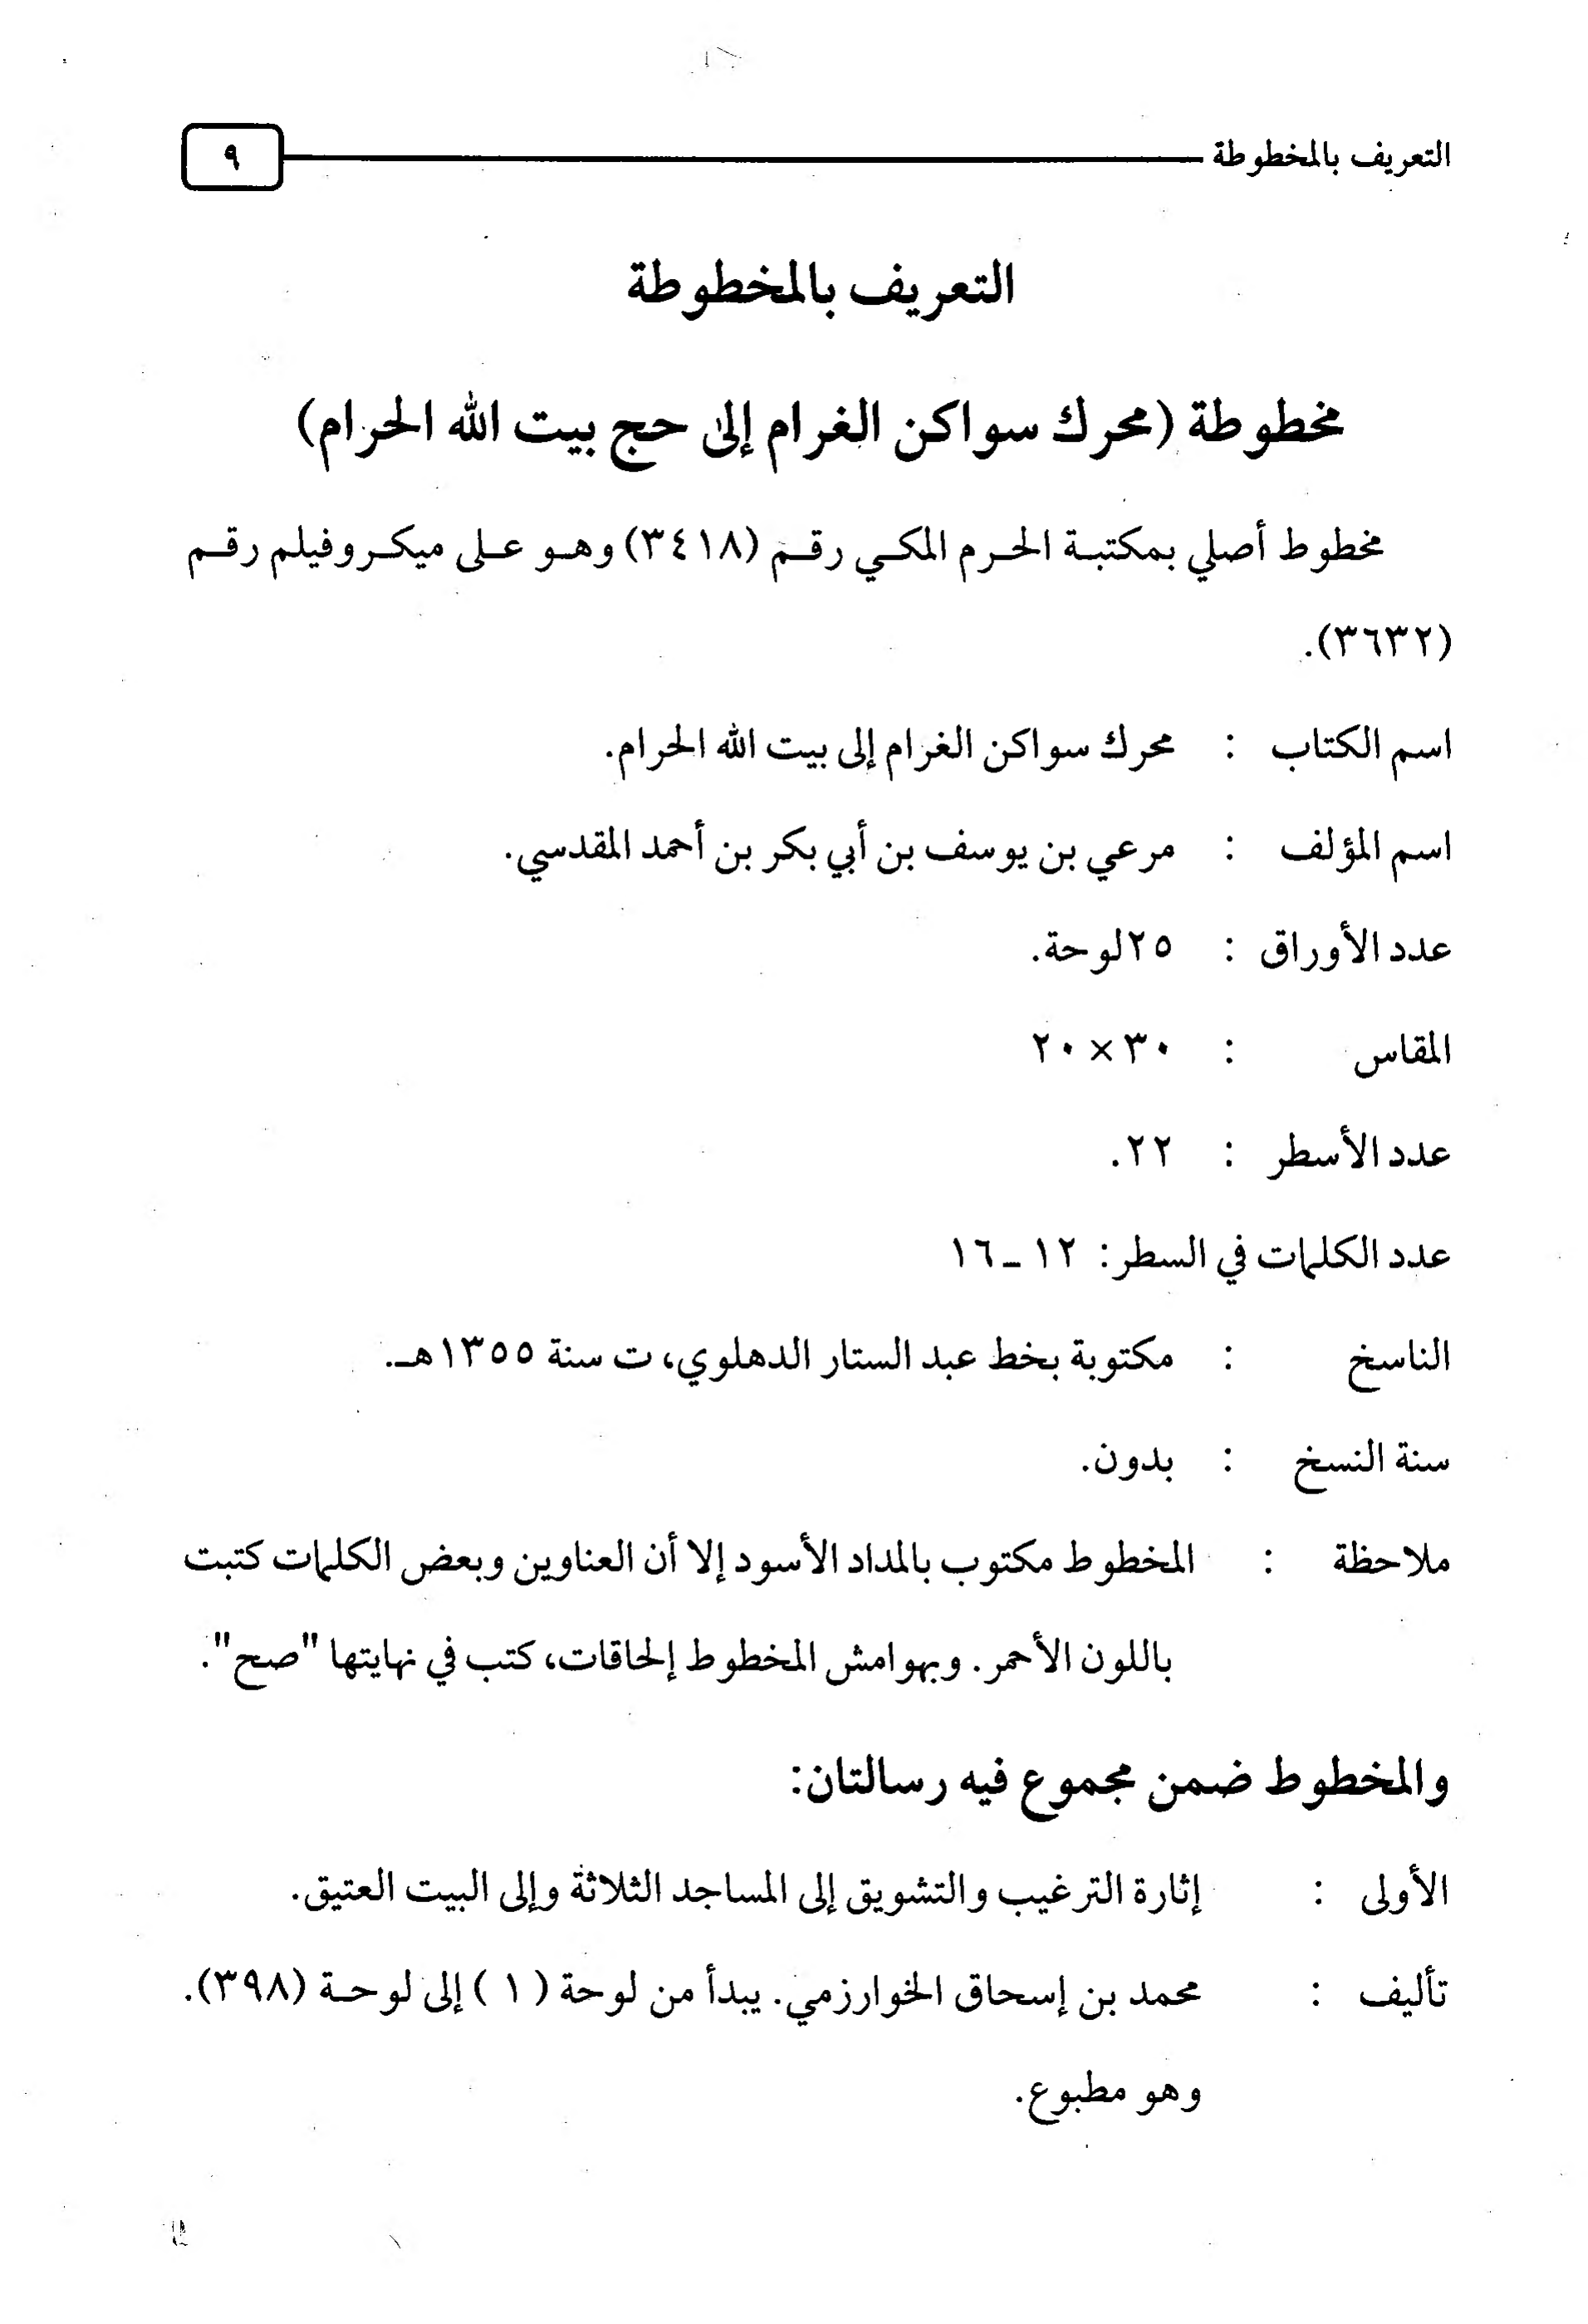 التعريف بالمخطوطة ٩
التعريف بالمخطوطة
مخطوطة (محرك سواكن الغرام إلى حج بيت الله الحرام)
مخطوط أصلي بمكتبة الحرم المكي رقم (٣٤١٨) وهو على ميكروفيلم رقم
(٣٦٣٢).
اسم الكتاب : محرك سواكن الغرام إلى بيت الله الحرام.
اسم المؤلف : مرعي بن يوسف بن أبي بكر بن أحمد المقدسي.
عدد الأوراق : ٢٥لوحة.
المقاس : ٣٠×٢٠
عدد الأسطر : ٢٢.
عدد الكلمات في السطر: ١٢ـ١٦
الناسخ : مكتوبة بخط عبد الستار الدهلوي، ت سنة ١٣٥٥هـ.
سنة النسخ : بدون.
ملاحظة : المخطوط مكتوب بالمداد الأسود إلا أن العناوين وبعض الكلمات كتبت
باللون الأحمر. وبهوامش المخطوط إلحاقات، كتب في نهايتها "صح".
والمخطوط ضمن مجموع فيه رسالتان:
الأولى : إثارة الترغيب والتشويق إلى المساجد الثلاثة وإلى البيت العتيق.
تأليف : محمد بن إسحاق الخوارزمي. يبدأ من لوحة (١) إلى لوحة (٣٩٨).
وهو مطبوع.